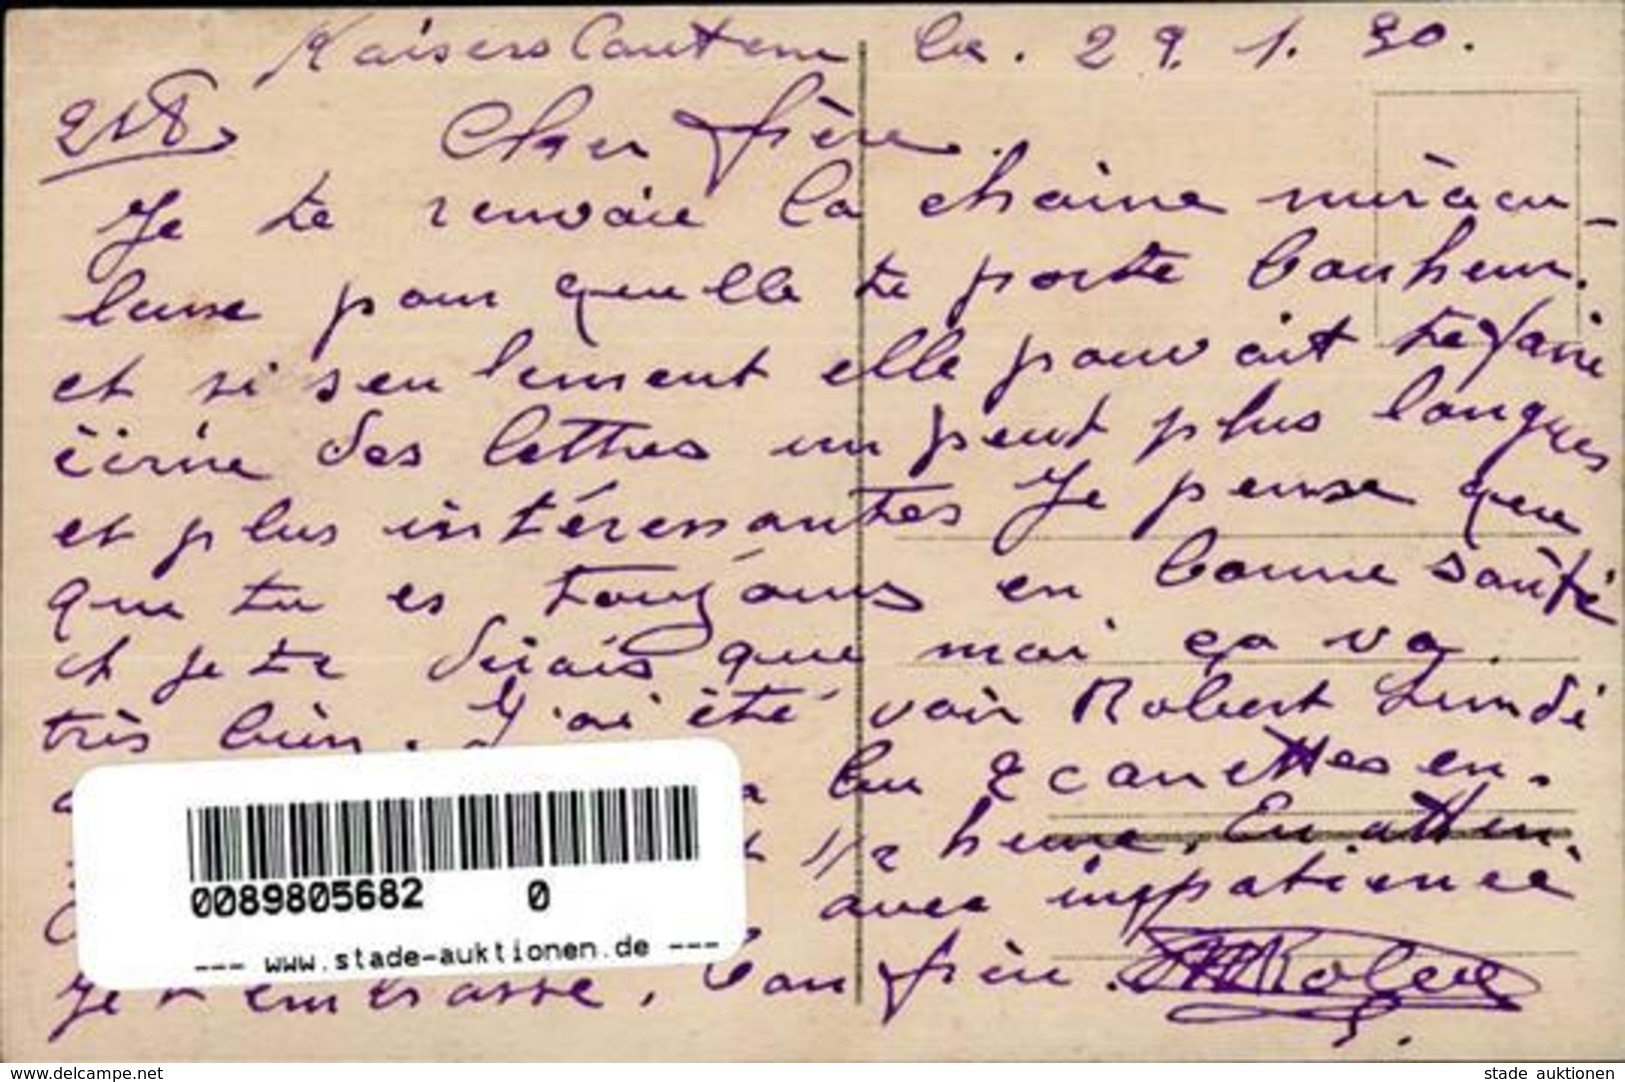 Kaiserslautern le. 29. 1. 30.
218.
Cher frère.
Je te renvoie la chaine miracu-
leuse pour quelle te porte bonheur.
et si seulement elle pouvait te faire
écrire des lettres un peut plus longues
et plus intéressantes Je pense que
que tu es toujours en bonne santé
et je te dirais que moi ça va.
très bien. J'ai été voir Robert Lundi
bu 2 canettes en.
1/2 heure. En atten.
avec impatience
Je t'embrasse. Ton frère.
0089805682 0
--- www.stade-auktionen.de ---
www.delcampe.net
stade auktionen